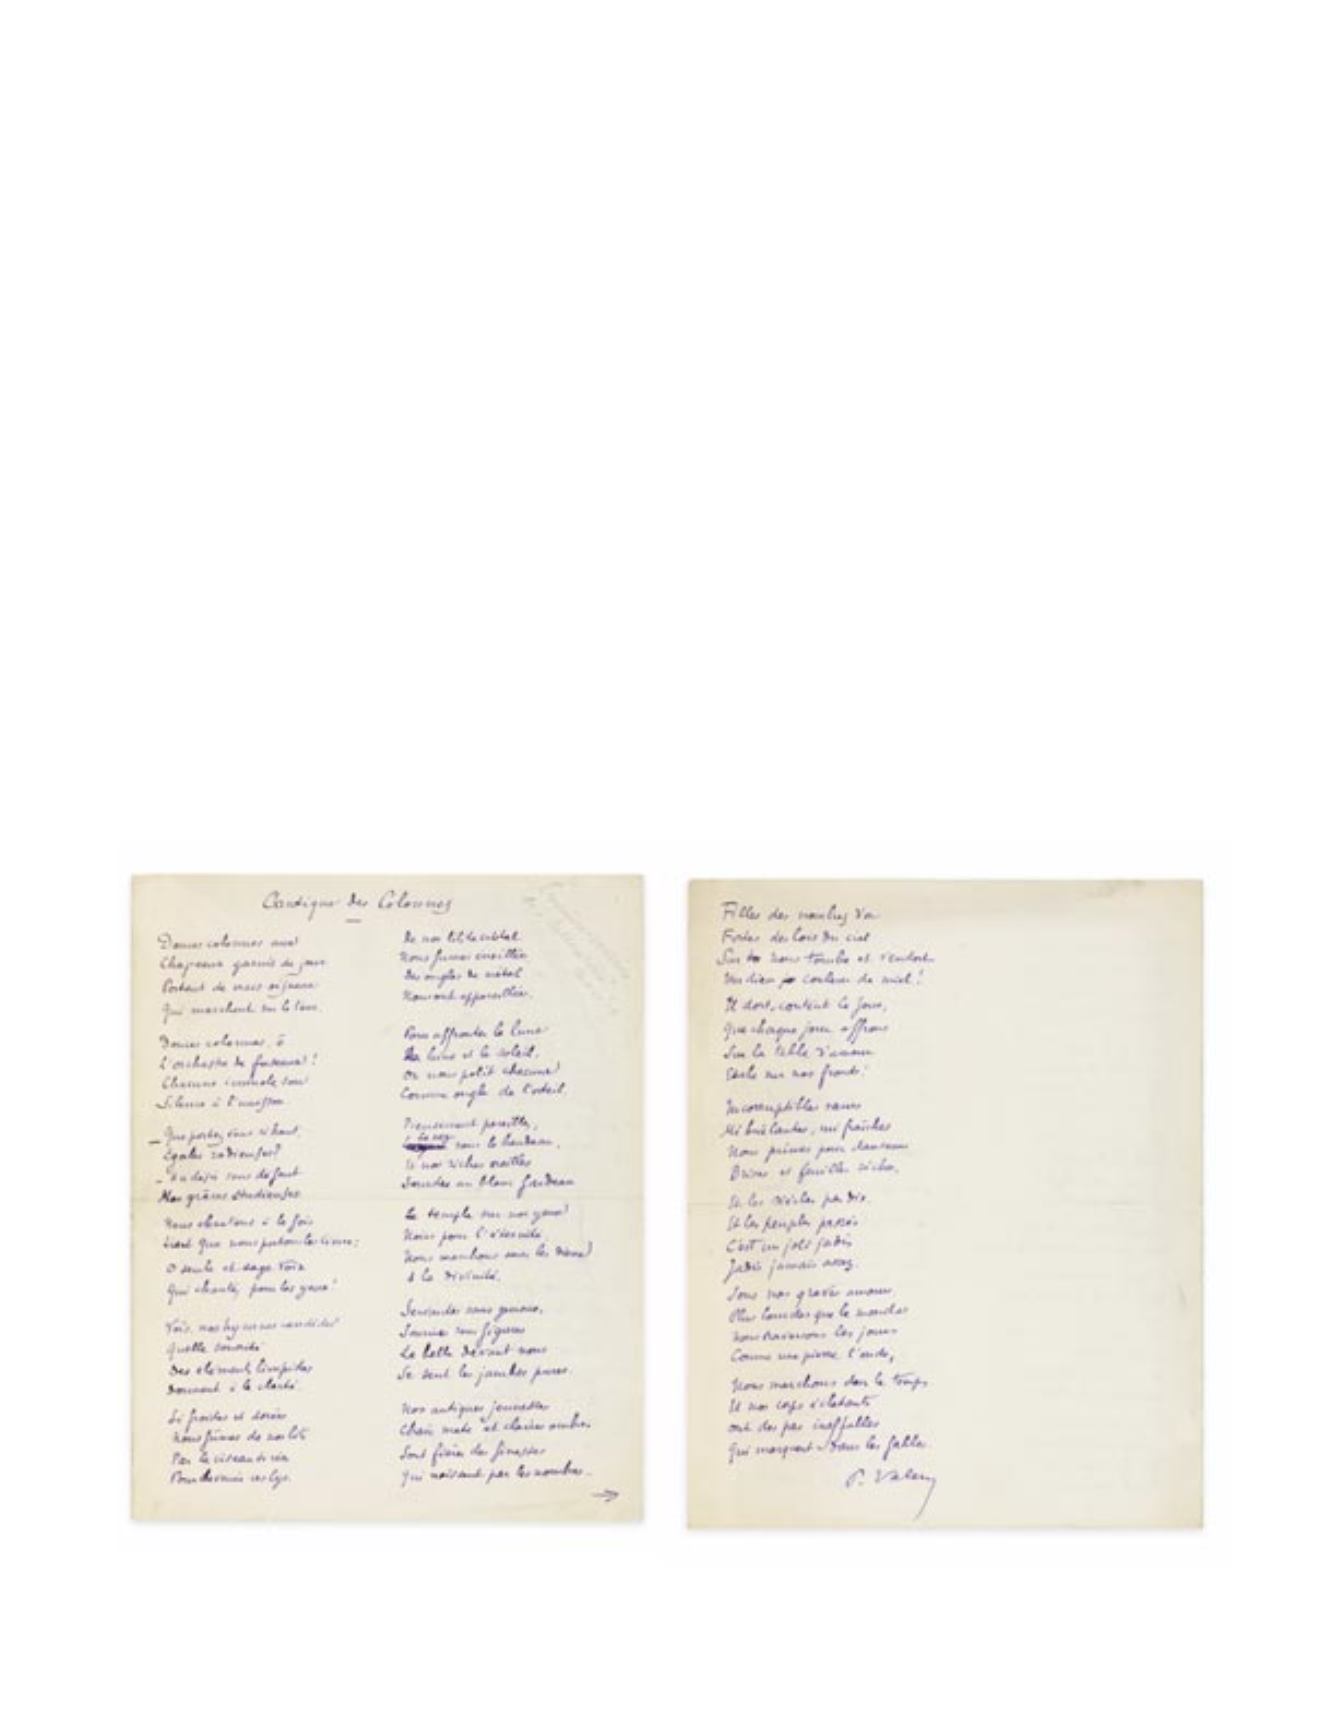 Cantique des Colonnes
Douces colonnes, aux
Chapeaux garnis de jour
Portant de vrais oiseaux
Qui marchent sur le tour,
Douces colonnes, ô
L'orchestre de fuseaux !
Chacune immole son
Silence à l'unisson
_ Que portez vous si haut,
Égales radieuses ?
_ Au désir sans défaut
Nos grâces studieuses
Nous chantons à la fois
Que nous portons les cieux ;
O seule et sage voix
Qui chantes pour les yeux !
Vois, nos hymnes candides
Quelle sonorité
Des éléments limpides
Donnent à la clarté.
Si froides et dorées
Nous fûmes de nos lits
Par le ciseau tirées
Pour devenir ces lys.
De nos lits de cristal
Nous fûmes éveillées
Des ongles de métal
Nous ont appareillées.
Pour affronter la lune
La lune et le soleil,
On nous polit chacune
Comme ongle de l'orteil.
Pieusement pareilles,
sous le bandeau,
Et nos riches oreilles
Sourdes au blanc fardeau
Le temple sur nos yeux
Noirs pour l'éternité
Nous marchons sans les dieux
A la divinité.
Servantes sans genoux,
Sourires sans figures
La belle devant nous
Se sent les jambes pures.
Nos antiques jeunesses
Chair mate et claires ombres
Sont fières des finesses
Qui naissent par les nombres.
→
Filles des nombres d'or
Fortes des lois du ciel
Sur nous tombe et s'endort
Un dieu couleur de miel !
Il dort, content le jour,
Que chaque jour offrons
Sur la table d'amour
Étale sur nos fronts.
Incorruptibles sœurs
Mi brûlantes, mi fraîches
Nous prîmes pour danseurs
Brises et feuilles sèches,
Et les siècles par dix,
Et les peuples passés
C'est un joli jadis
Jadis jamais assez.
Sous nos graves amours
Plus lourdes que le monde
Nous traversons les jours
Comme une pierre l'onde,
Nous marchons dans le temps
Et nos corps éclatants
ont des pas ineffables
Qui marquent dans les fables
P. Valery